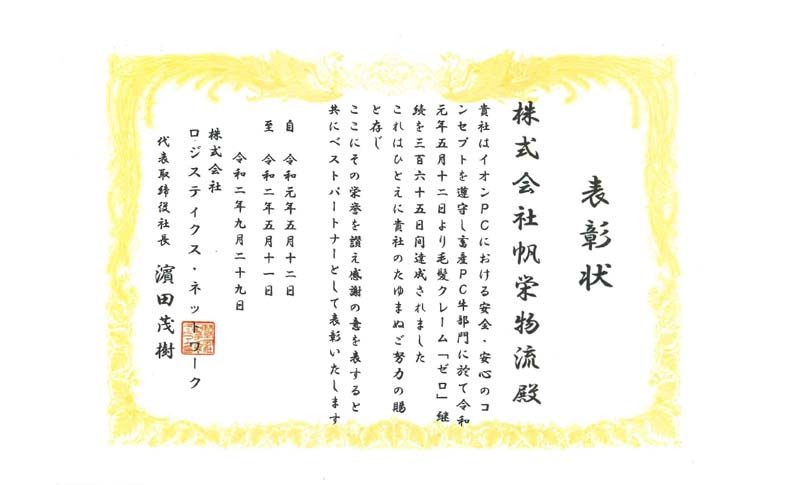 表彰状
株式会社帆栄物流殿
貴社はイオンPCにおける安全・安心のコ
ンセプトを遵守し畜産PC牛部門に於て令和
元年五月十二日より毛髪クレーム「ゼロ」継
続を三百六十五日間達成されました
これはひとえに貴社のたゆまぬご努力の賜
と存じ
ここにその栄誉を讃え感謝の意を表すると
共にベストパートナーとして表彰いたします
自 令和元年五月十二日
至 令和二年五月十一日
令和二年九月二十九日
株式会社
ロジスティクス・ネットワーク
代表取締役社長 濵田茂樹